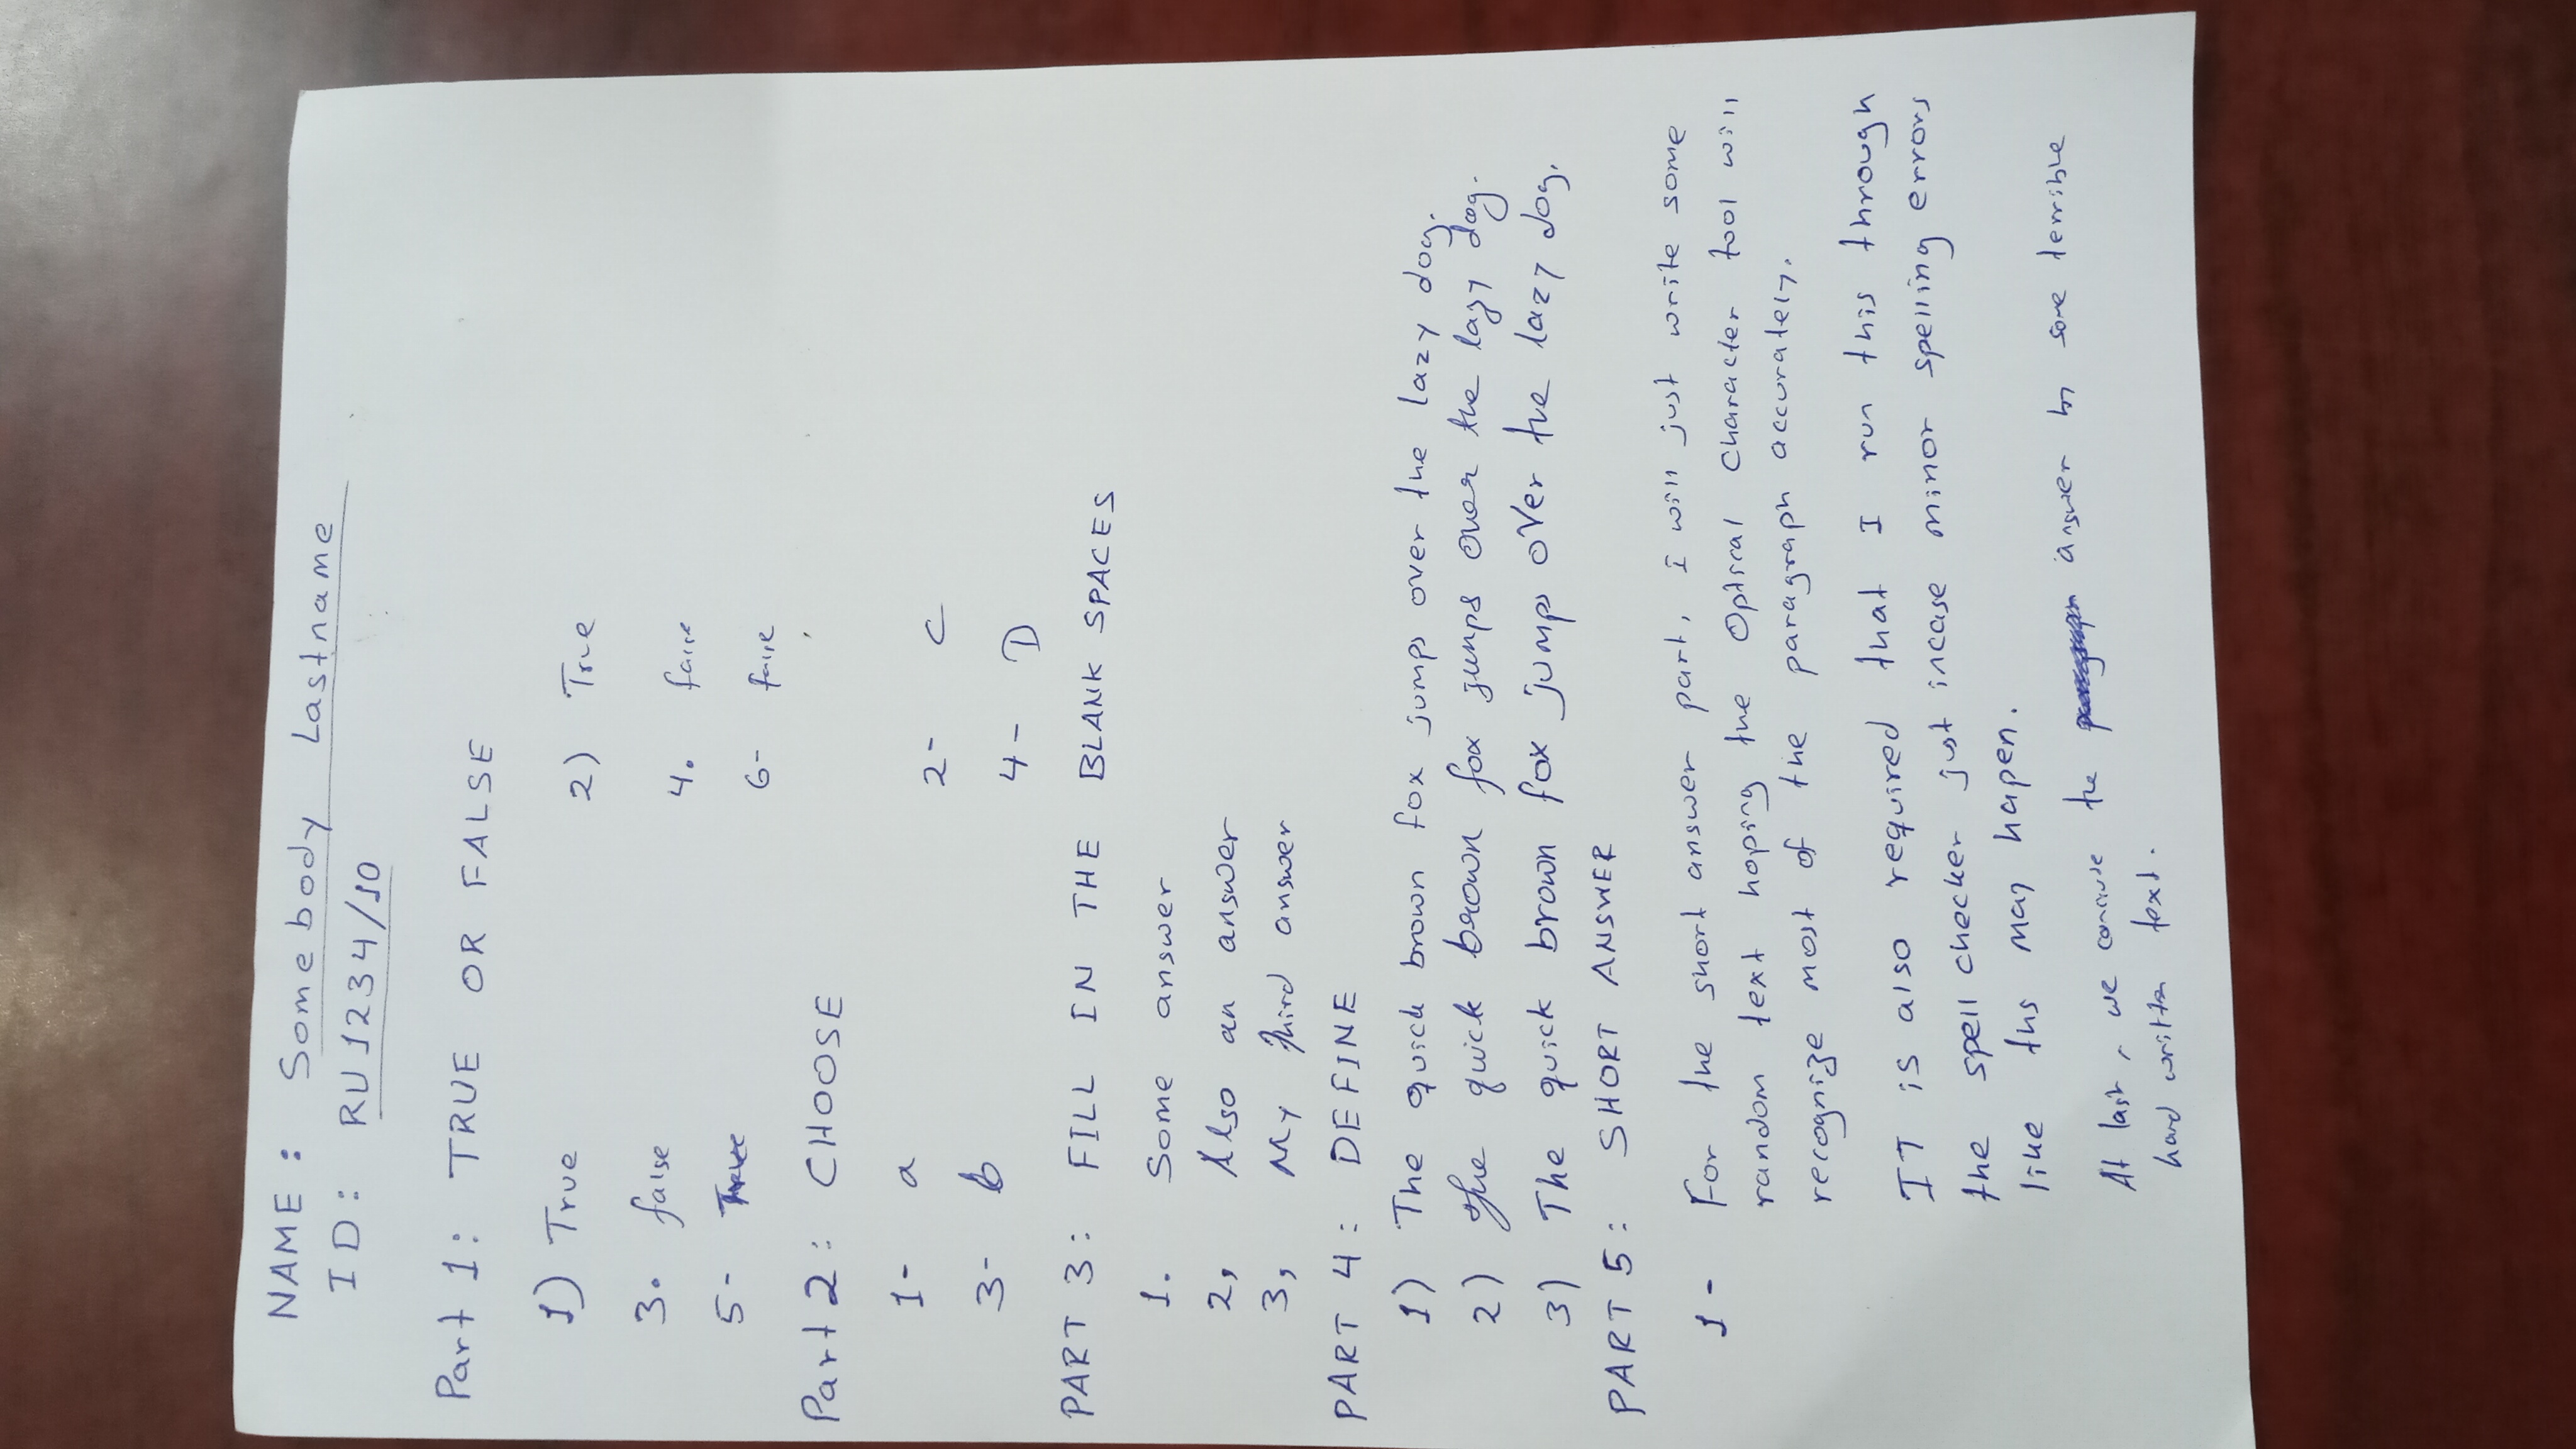 NAME : Somebody Lastname
ID : RU1234/10
Part 1: TRUE OR FALSE
1) True 2) True
3. false 4. false
5- True 6- false
Part 2: CHOOSE
1- a 2- c
3- b 4- D
PART 3: FILL IN THE BLANK SPACES
1. Some answer
2, Also an answer
3, My third answer
PART 4: DEFINE
1) The quick brown fox jumps over the lazy dog.
2) The quick brown fox jumps over the lazy dog.
3) The quick brown fox jumps over the lazy dog.
PART 5: SHORT ANSWER
1- For the short answer part, I will just write some
random text hoping the Optical Character tool will
recognize most of the paragraph accurately.
IT is also required that I run this through
the spell checker just incase minor spelling errors
like ths may hapen.
At last, we conclude the answer by some terrible
hand written text.